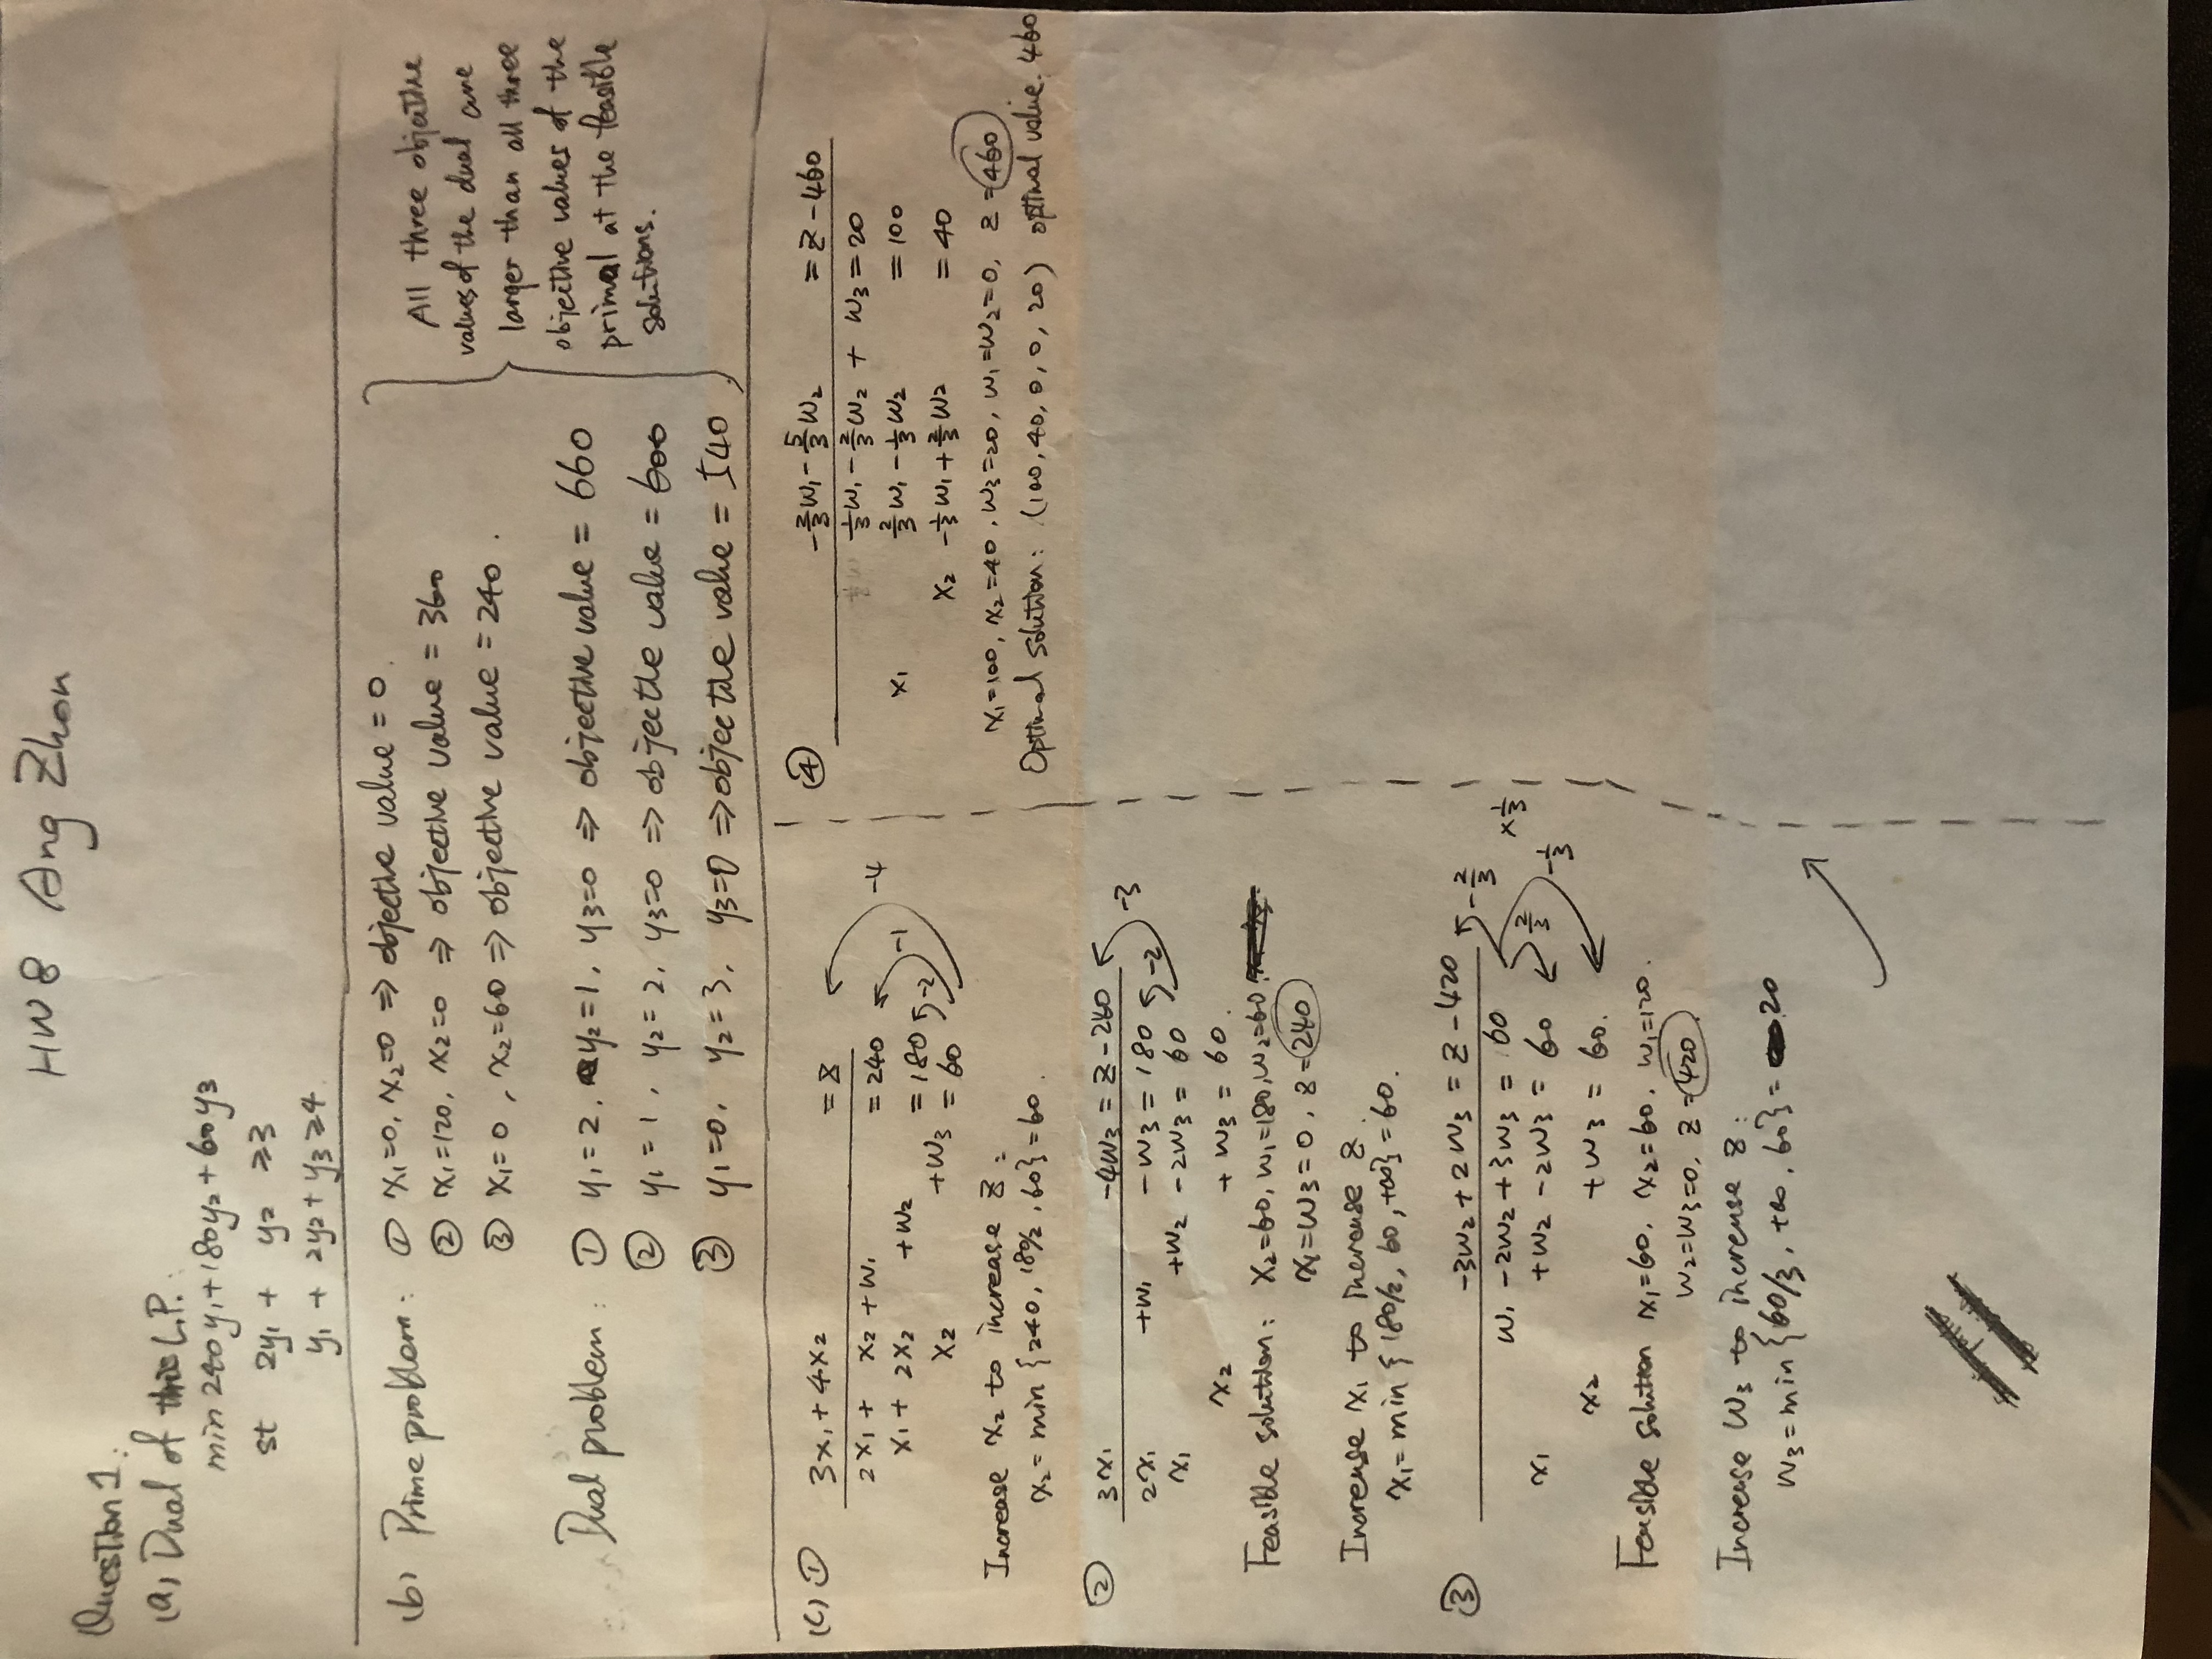 HW8 Ang Zhou
Question 1:
(a) Dual of this L.P.:
min 240y₁+180y₂+60y₃
st 2y₁ + y₂ ≥3
y₁ + 2y₂+ y₃ ≥4
(b) Prime problem: ① x₁=0, x₂=0 => objective value = 0.
② x₁=120, x₂=0 => objective value = 360
③ x₁=0, x₂=60 => objective value = 240.
Dual problem: ① y₁=2, y₂=1, y₃=0 => objective value = 660
② y₁=1, y₂=2, y₃=0 => objective value = 600
③ y₁=0, y₂=3, y₃=0 => objective value = 540
All three objective
values of the dual are
larger than all three
objective values of the
primal at the feasible
solutions.
(c) ① 3x₁+4x₂ = z
2x₁+ x₂ +w₁ = 240
x₁+ 2x₂ +w₂ = 180
x₂ +w₃ = 60
-2 -1 -4
Increase x₂ to increase z:
x₂= min {240, 180/2, 60}=60.
② 3x₁ -4w₃ = z-240
2x₁ +w₁ -w₃ = 180
x₁ +w₂ -2w₃ = 60
x₂ + w₃ = 60.
-2 -3
Feasible solution: x₂=60, w₁=180, w₂=60
x₁=w₃=0, z=240
Increase x₁ to increase z.
x₁= min {180/2, 60, +∞}=60.
③ -3w₂+2w₃ = z-420
w₁ -2w₂+3w₃ = 60
x₁ +w₂ -2w₃ = 60
x₂ +w₃ = 60.
-2/3 2/3 -1/3 ×1/3
Feasible solution x₁=60, x₂=60, w₁=120.
w₂=w₃=0, z=420
Increase w₃ to increase z:
w₃= min {60/3, +∞, 60}= 20
④ -2/3w₁-5/3w₂ = z-460
1/3w₁-2/3w₂ + w₃=20
x₁ 2/3w₁-1/3w₂ =100
x₂ -1/3w₁+2/3w₂ =40
x₁=100, x₂=40, w₃=20, w₁=w₂=0, z=460
Optimal solution: (100, 40, 0, 0, 20) optimal value: 460